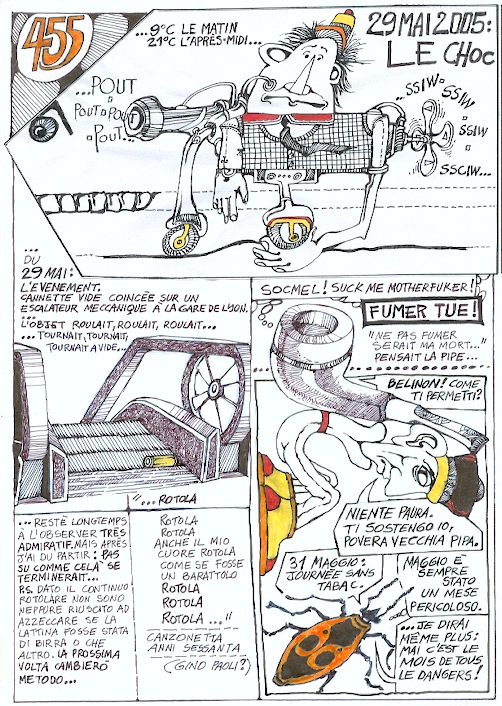 455
...9°C LE MATIN
21°C L'APRÈS-MIDI...
29 MAI 2005:
LE CHOC
...POUT
POUT POU
POUT...
...SSIW
SSIW
SSIW
SSCIW...
...
DU
29 MAI:
L'EVENEMENT.
CANNETTE VIDE COINCÉE SUR UN
ESCALATEUR MECCANIQUE À LA GARE DE LYON.
...
L'OBJET ROULAIT, ROULAIT, ROULAIT...
... TOURNAIT, TOURNAIT,
TOURNAIT À VIDE...
SOCMEL! SUCK ME MOTHERFUKER!
FUMER TUE!
"NE PAS FUMER
SERAIT MA MORT..."
PENSAIT LA PIPE...
BELINON! COME
TI PERMETTI?
NIENTE PAURA.
TI SOSTENGO IO,
POVERA VECCHIA PIPA.
31 MAGGIO:
JOURNÉE SANS
TABAC.
MAGGIO È
SEMPRE
STATO
UN MESE
PERICOLOSO.
...JE DIRAI
MÊME PLUS:
MAI C'EST LE
MOIS DE TOUS
LE DANGERS!
... RESTÉ LONGTEMPS
À L'OBSERVER TRÈS
ADMIRATIF. MAIS APRÈS
J'AI DU PARTIR: PAS
SU COMME CELÀ SE
TERMINERAIT...
P.S. DATO IL CONTINUO
ROTOLARE NON SONO
NEPPURE RIUSCITO AD
AZZECCARE SE LA
LATTINA FOSSE STATA
DI BIRRA O CHE
ALTRO. LA PROSSIMA
VOLTA CAMBIERÒ
METODO...
"... ROTOLA
ROTOLA
ROTOLA
ANCHE IL MIO
CUORE ROTOLA
COME SE FOSSE
UN BARATTOLO
ROTOLA
ROTOLA
ROTOLA ..."
CANZONETTA
ANNI SESSANTA
(GINO PAOLI?)